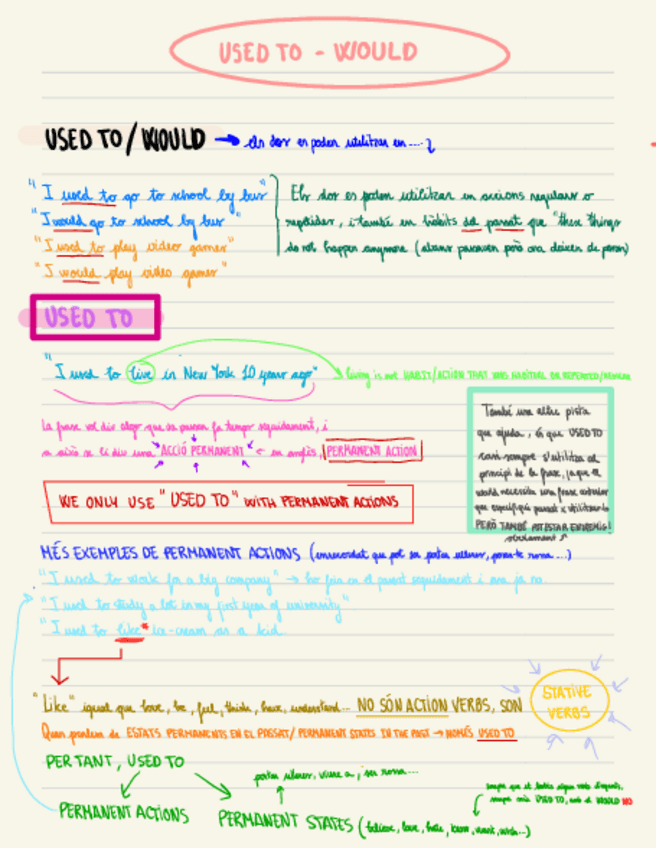 USED TO - WOULD
USED TO / WOULD → els dos es poden utilitzar en....
"I used to go to school by bus"
"I would go to school by bus"
"I used to play video games"
"I would play video games"
Els dos es poden utilitzar en accions regulars o
repetides, i també en hàbits del passat que "these things
do not happen anymore (abans passaven però ara deixen de passar)
USED TO
"I used to live in New York 10 years ago"
living is not HABIT/ACTION THAT WAS HABITUAL OR REPEATED/REGULAR
La frase vol dir algo que va passar fa temps seguidament, i
a això se li diu una "ACCIÓ PERMANENT" ← en anglès, PERMANENT ACTION
WE ONLY USE "USED TO" WITH PERMANENT ACTIONS
També una altre pista
que ajuda, és que USED TO
casi sempre s'utilitza al
principi de la frase, ja que el
would necessita una frase anterior
que especifiqui passat x utilitzar-lo
PERÒ TAMBÉ POT ESTAR EN ENMIG!
MÉS EXEMPLES DE PERMANENT ACTIONS (enrecorda't que pot ser portar ulleres, portar-te roma...)
"I used to work for a big company" → ho feia en el passat seguidament i ara ja no
"I used to study a lot in my first year of university"
"I used to like* ice-cream as a kid
"Like" igual que love, be, feel, think, have, understand... NO SÓN ACTION VERBS, SON
STATIVE
VERBS
Quan parlem de ESTATS PERMANENTS EN EL PASSAT/ PERMANENT STATES IN THE PAST → NOMÉS USED TO
PER TANT, USED TO
portar ulleres, viure a, ser
PERMANENT ACTIONS
PERMANENT STATES (believe, love, hate, know, want, wish...)
sempre que et trobis algun verb d'aquests,
sempre serà USED TO, amb el WOULD NO